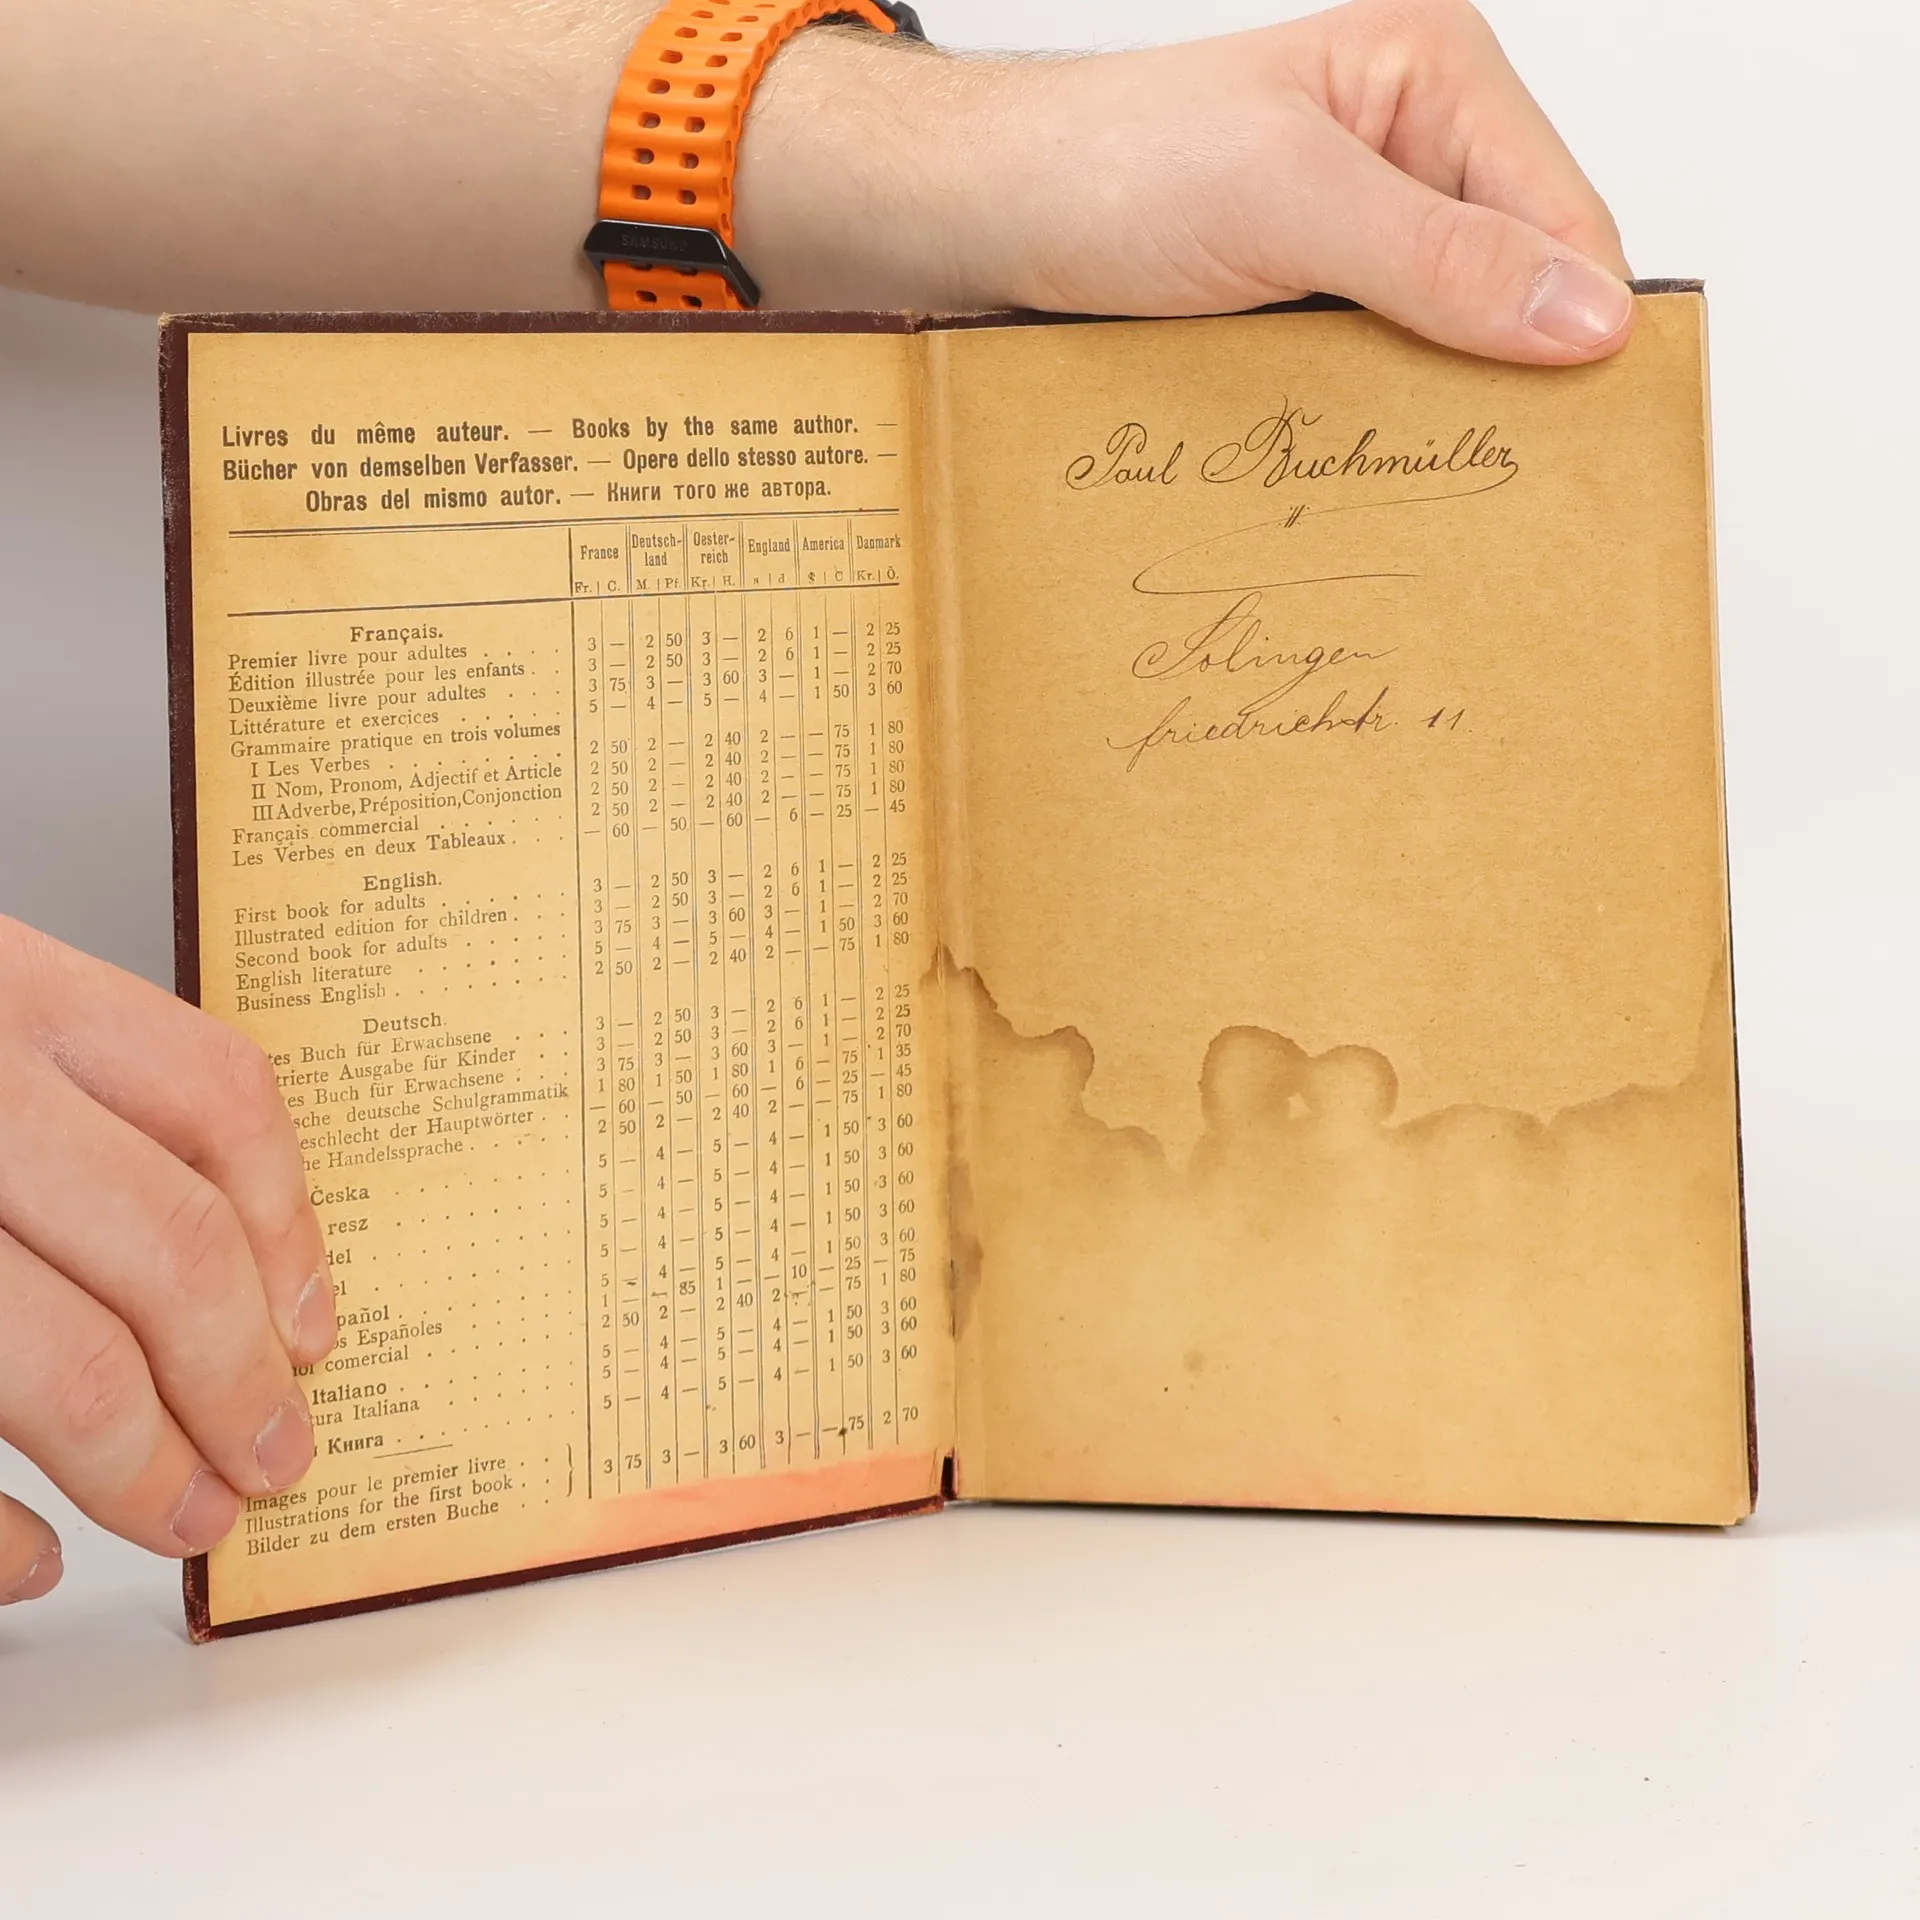 SAMSUNG
Livres du même auteur. — Books by the same author. —
Bücher von demselben Verfasser. — Opere dello stesso autore. —
Obras del mismo autor. — Книги того же автора.
France Deutsch-land Oester-reich England America Danmark
Fr. C. M. Pf. Kr. H. s d $ C Kr. Ö.
Français.
Premier livre pour adultes . . . . 3 — 2 50 3 — 2 6 1 — 2 25
Édition illustrée pour les enfants . . 3 — 2 50 3 — 2 6 1 — 2 25
Deuxième livre pour adultes . . . 3 75 3 — 3 60 3 — 1 — 2 70
Littérature et exercices . . . . . 5 — 4 — 5 — 4 — 1 50 3 60
Grammaire pratique en trois volumes
I Les Verbes . . . . . . . 2 50 2 — 2 40 2 — — 75 1 80
II Nom, Pronom, Adjectif et Article 2 50 2 — 2 40 2 — — 75 1 80
III Adverbe, Préposition, Conjonction 2 50 2 — 2 40 2 — — 75 1 80
Français commercial . . . . . . 2 50 2 — 2 40 2 — — 75 1 80
Les Verbes en deux Tableaux . . . — 60 — 50 — 60 — 6 — 25 — 45
English.
First book for adults . . . . . . 3 — 2 50 3 — 2 6 1 — 2 25
Illustrated edition for children . . . 3 — 2 50 3 — 2 6 1 — 2 25
Second book for adults . . . . . 3 75 3 — 3 60 3 — 1 — 2 70
English literature . . . . . . 5 — 4 — 5 — 4 — 1 50 3 60
Business English . . . . . . . 2 50 2 — 2 40 2 — — 75 1 80
Deutsch.
Buch für Erwachsene . . . 3 — 2 50 3 — 2 6 1 — 2 25
Ausgabe für Kinder . . 3 — 2 50 3 — 2 6 1 — 2 25
Buch für Erwachsene . . . 3 75 3 — 3 60 3 — 1 — 2 70
deutsche Schulgrammatik 1 80 1 50 1 80 1 6 — 75 1 35
der Hauptwörter . . — 60 — 50 — 60 — 6 — 25 — 45
Handelssprache . . . . . 2 50 2 — 2 40 2 — — 75 1 80
Česka . . . . . . . 5 — 4 — 5 — 4 — 1 50 3 60
resz . . . . . . . 5 — 4 — 5 — 4 — 1 50 3 60
del . . . . . . . 5 — 4 — 5 — 4 — 1 50 3 60
el . . . . . . . 5 — 4 — 5 — 4 — 1 50 3 60
pañol . . . . . . . 5 — 4 — 5 — 4 — 1 50 3 60
Españoles . . . . . 1 — — 85 1 — — 10 — 25 — 75
comercial . . . . . . 2 50 2 — 2 40 2 — — 75 1 80
Italiano . . . . . . . 5 — 4 — 5 — 4 — 1 50 3 60
Italiana . . . . . 5 — 4 — 5 — 4 — 1 50 3 60
Книга . . . . . . . 5 — 4 — 5 — 4 — 1 50 3 60
Images pour le premier livre . .
Illustrations for the first book . . } 3 75 3 — 3 60 3 — — 75 2 70
Bilder zu dem ersten Buche . .
Paul Buchmüller
Solingen
friedrichstr. 11.